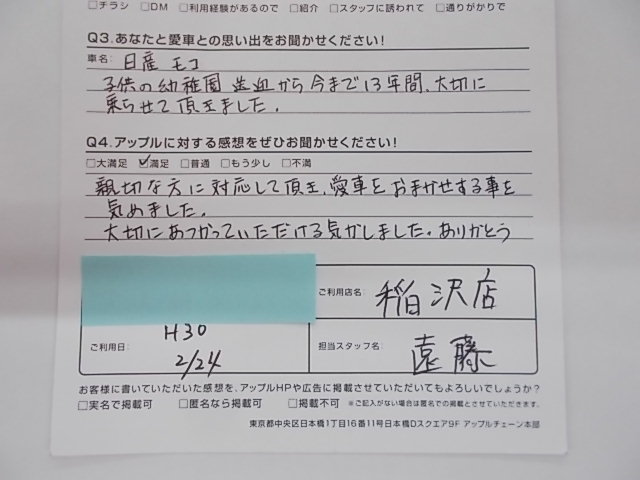 □チラシ □DM □利用経験があるので □紹介 □スタッフに誘われて □通りがかりで
Q3.あなたと愛車との思い出をお聞かせください!
車名: 日産 モコ
子供の幼稚園 送迎から今まで13年間、大切に
乗らせて頂きました。
Q4.アップルに対する感想をぜひお聞かせください!
□大満足 ☑満足 □普通 □もう少し □不満
親切な方に対応して頂き、愛車をおまかせする事を
気めました。
大切にあつかっていただける気がしました。ありがとう
ご利用店名: 稲沢店
ご利用日: H30
2/24
担当スタッフ名: 遠藤
お客様に書いていただいた感想を、アップルHPや広告に掲載させていただいてもよろしいでしょうか?
□実名で掲載可 □匿名なら掲載可 □掲載不可 ※ご記入がない場合は匿名での掲載とさせていただきます。
東京都中央区日本橋1丁目16番11号日本橋Dスクエア9F アップルチェーン本部